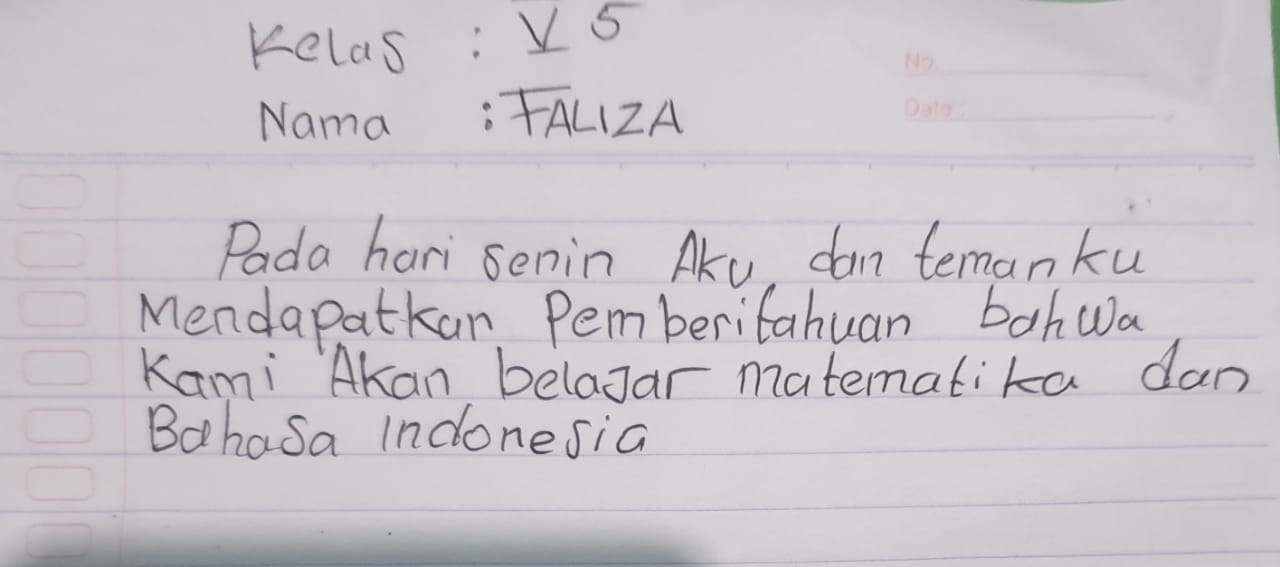 Kelas : V 5
No.
Nama : FALIZA
Date :
Pada hari senin Aku dan temanku
Mendapatkan Pemberitahuan bahwa
Kami Akan belaJar matematika dan
BahaSa indonesia